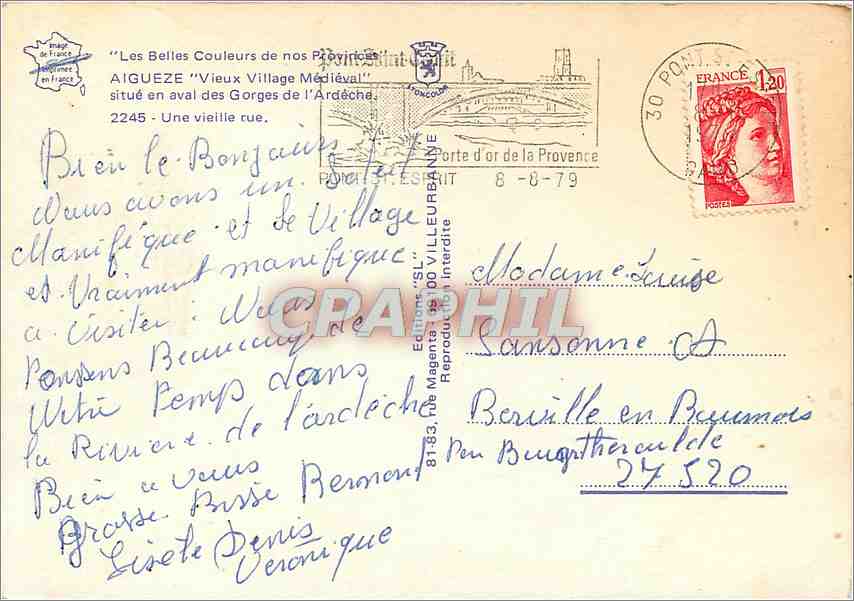 image
de France
imprimée
en France
"Les Belles Couleurs de nos Provinces
AIGUEZE "Vieux Village Médiéval"
situé en aval des Gorges de l'Ardèche.
2245 - Une vieille rue.
Pont Saint Esprit
LYONCOLOR
Porte d'or de la Provence
PONT ST. ESPRIT 8-8-79
30 PONT. S.
FRANCE 1,20
POSTES
Bien le Bonjours
Nous avons un Soleil
Manifique et le Village
et Vraiment manifique
a Visiter. Nous
Passons Beaucoup de
Notre Temp dans
la Riviere de l'ardèche
Bien a vous
Grosse Bisse Bernard
Lisete Denis
Veronique
Editions "SL"
81-83, rue Magenta - 69100 VILLEURBANNE
Reproduction interdite
CPAPHIL
Madame Louise
Sansonne
Berville en Roumois
Par Bourgtheroulde
27520